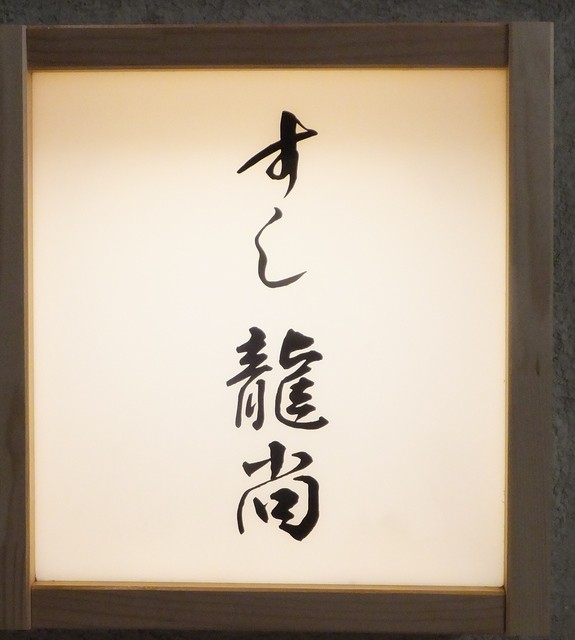 すし龍尚